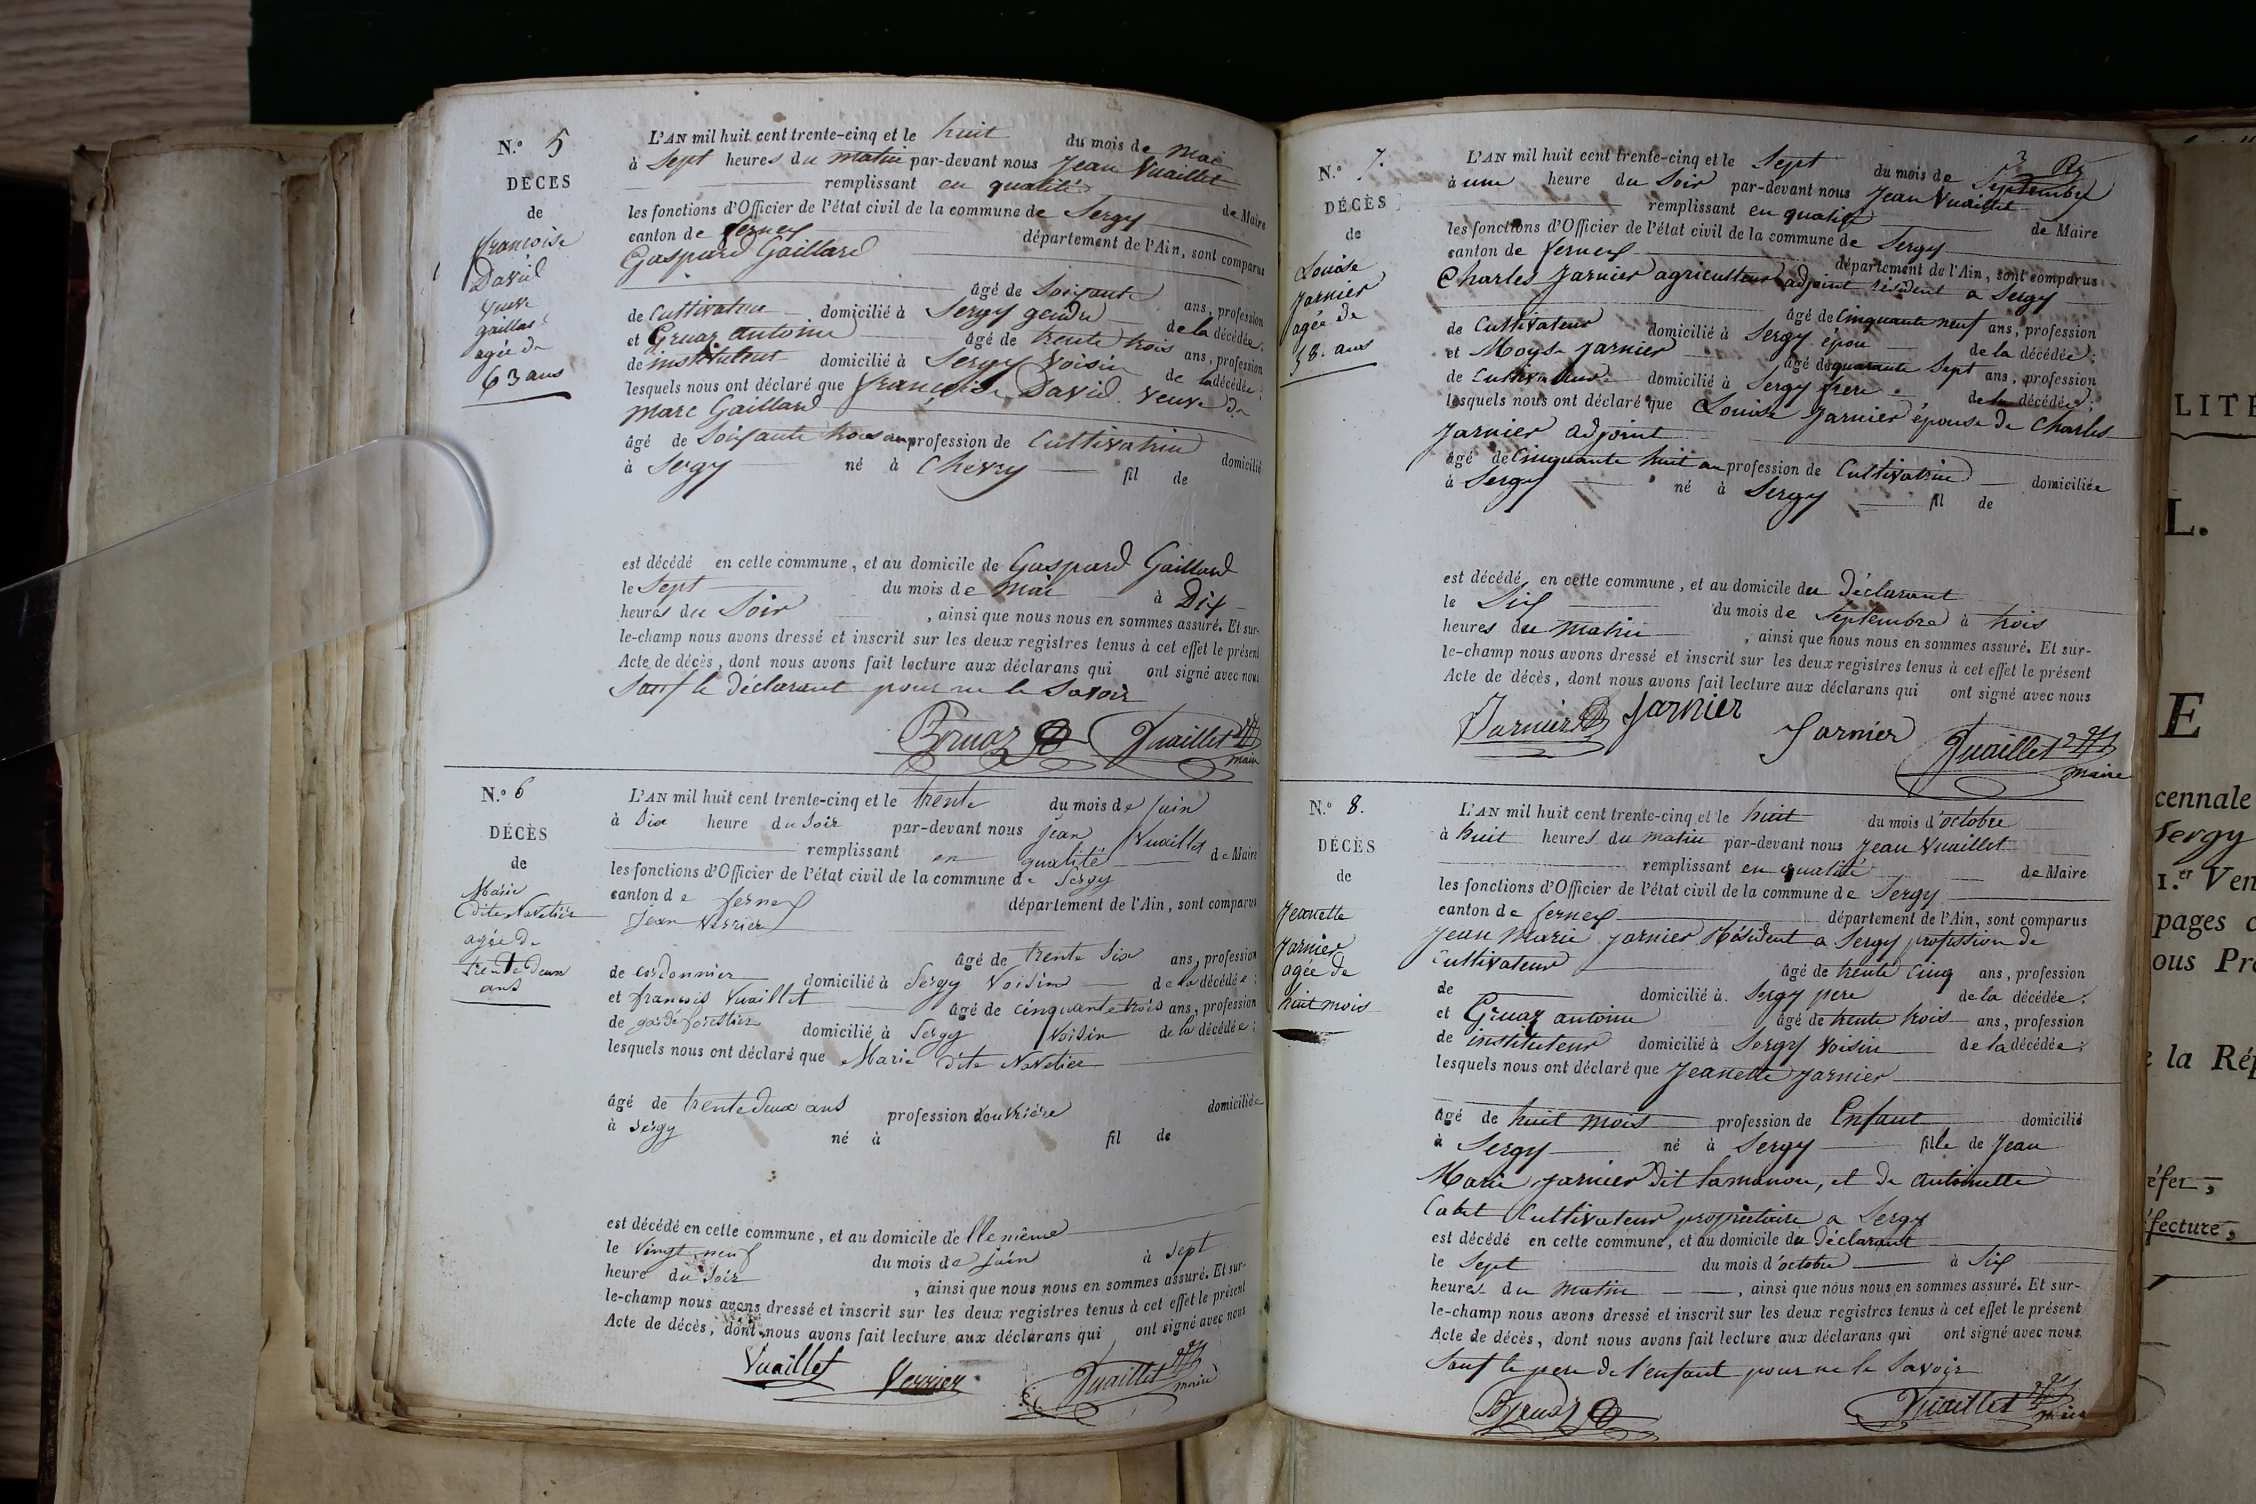 N.° 5
DÉCÈS
de
françoise
David
veuve
gaillard
agée de
63 ans
L'AN mil huit cent trente-cinq et le huit du mois de mai
à sept heures du matin par-devant nous Jean Vuaillet
remplissant en qualité de Maire
les fonctions d'Officier de l'état civil de la commune de Sergy
canton de ferney département de l'Ain, sont comparus
Gaspard Gaillard
âgé de soixante ans, profession
de Cultivateur domicilié à Sergy gendre de la décédée;
et Gruaz antoine âgé de trente trois ans, profession
de instituteur domicilié à Sergy Voisin de la décédée;
lesquels nous ont déclaré que françoise David veuve de
marc Gaillard
âgé de Soixante trois ans profession de Cultivatrice domicilié
à Sergy né à Chevry fil de
est décédé en cette commune, et au domicile de Gaspard Gaillard
le Sept du mois de mai à Dix
heures du Soir, ainsi que nous nous en sommes assuré. Et sur-
le-champ nous avons dressé et inscrit sur les deux registres tenus à cet effet le présent
Acte de décès, dont nous avons fait lecture aux déclarans qui ont signé avec nous
Sauf le déclarant pour ne le Savoir
Gruaz Vuaillet
maire
N.° 6
DÉCÈS
de
Marie
dite Navetier
agée de
trente deux
ans
L'AN mil huit cent trente-cinq et le trente du mois de juin
à Six heure du Soir par-devant nous Jean Vuaillet
remplissant en qualité de Maire
les fonctions d'Officier de l'état civil de la commune de Sergy
canton de ferney département de l'Ain, sont comparus
Jean Verrier
âgé de trente Six ans, profession
de cordonnier domicilié à Sergy Voisin de la décédée;
et françois Vuaillet âgé de cinquante trois ans, profession
de garde forestier domicilié à Sergy Voisin de la décédée;
lesquels nous ont déclaré que Marie dite Navetier
âgé de trente deux ans profession d'ouvrière domiciliée
à Sergy né à fil de
est décédé en cette commune, et au domicile d'elle même
le Vingt neuf du mois de juin à Sept
heure du Soir, ainsi que nous nous en sommes assuré. Et sur-
le-champ nous avons dressé et inscrit sur les deux registres tenus à cet effet le présent
Acte de décès, dont nous avons fait lecture aux déclarans qui ont signé avec nous
Vuaillet Verrier Vuaillet
maire
N.° 7.
DÉCÈS
de
Louise
Jarnier
agée de
58. ans
L'AN mil huit cent trente-cinq et le Sept du mois de Septembre
à une heure du Soir par-devant nous Jean Vuaillet
remplissant en qualité de Maire
les fonctions d'Officier de l'état civil de la commune de Sergy
canton de ferney département de l'Ain, sont comparus
Charles Jarnier agriculteur adjoint résident a Sergy
âgé de Cinquante neuf ans, profession
de Cultivateur domicilié à Sergy époux de la décédée;
et Moyse Jarnier âgé de quarante Sept ans, profession
de Cultivateur domicilié à Sergy frere de la décédée;
lesquels nous ont déclaré que Louise Jarnier épouse de Charles
Jarnier adjoint
âgé de Cinquante huit an profession de Cultivatrice domiciliée
à Sergy né à Sergy fil de
est décédé en cette commune, et au domicile du Déclarant
le Six du mois de Septembre à trois
heures du matin, ainsi que nous nous en sommes assuré. Et sur-
le-champ nous avons dressé et inscrit sur les deux registres tenus à cet effet le présent
Acte de décès, dont nous avons fait lecture aux déclarans qui ont signé avec nous
Jarnier Jarnier
Jarnier Vuaillet
maire
N.° 8.
DÉCÈS
de
Jeanette
Jarnier
agée de
huit mois
L'AN mil huit cent trente-cinq et le huit du mois d'octobre
à huit heures du matin par-devant nous Jean Vuaillet
remplissant en qualité de Maire
les fonctions d'Officier de l'état civil de la commune de Sergy
canton de ferney département de l'Ain, sont comparus
Jean Marie Jarnier Résident a Sergy profession de
Cultivateur âgé de trente Cinq ans, profession
de domicilié à Sergy pere de la décédée;
et Gruaz antoine âgé de trente trois ans, profession
de instituteur domicilié à Sergy voisin de la décédée;
lesquels nous ont déclaré que Jeanette Jarnier
âgé de huit mois profession de Enfant domicilié
à Sergy né à Sergy fille de Jean
Marie Jarnier dit lamanou, et de antoinette
Cabet Cultivateur propriétaire a Sergy
est décédé en cette commune, et au domicile du Déclarant
le Sept du mois d'octobre à Six
heures du matin, ainsi que nous nous en sommes assuré. Et sur-
le-champ nous avons dressé et inscrit sur les deux registres tenus à cet effet le présent
Acte de décès, dont nous avons fait lecture aux déclarans qui ont signé avec nous
Sauf le pere de l'enfant pour ne le Savoir
Gruaz Vuaillet
maire
LITÉ
L.
E
cennale
Sergy
1.er Ven
pages c
ous Pré
e la Rép
éfet,
fecture,